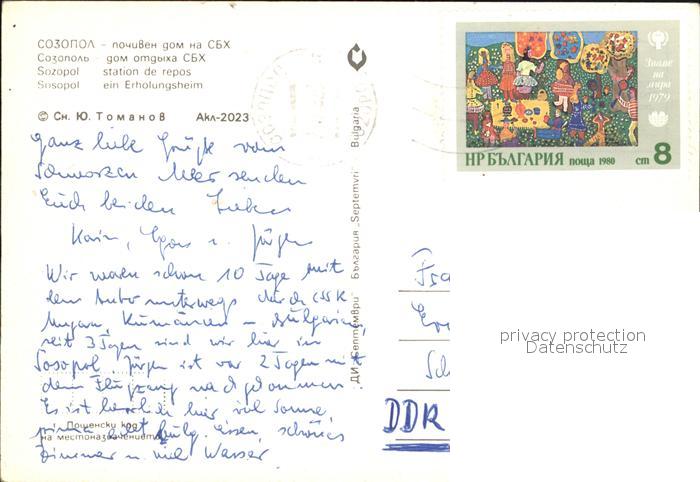 СОЗОПОЛ - почивен дом на СБХ
Созополь - дом отдыха СБХ
Sozopol station de repos
Sosopol ein Erholungsheim
© Сн. Ю. Томанов Акл-2023
Ganz liebe Grüße vom
Schwarzen Meer senden
Euch beiden Lieben
Karin, u. Jürgen
Wir waren schon 10 Tage mit
dem Auto unterwegs durch CSSR
Ungarn, Rumänien - Bulgarien,
seit 3 Tagen sind wir hier in
Sosopol. Jürgen ist vor 2 Tagen mit
dem Flugzeug nachgekommen
Es ist herrlich hier, viel Sonne,
prima bulg. Essen, schönes
Zimmer u. viel Wasser
Пощенски код
на местоназначението
ДИ „Септември“ България „Septemvri“ Bulgaria
Знаме
на
мира
1979
НР БЪЛГАРИЯ поща 1980 cm 8
DDR
privacy protection
Datenschutz